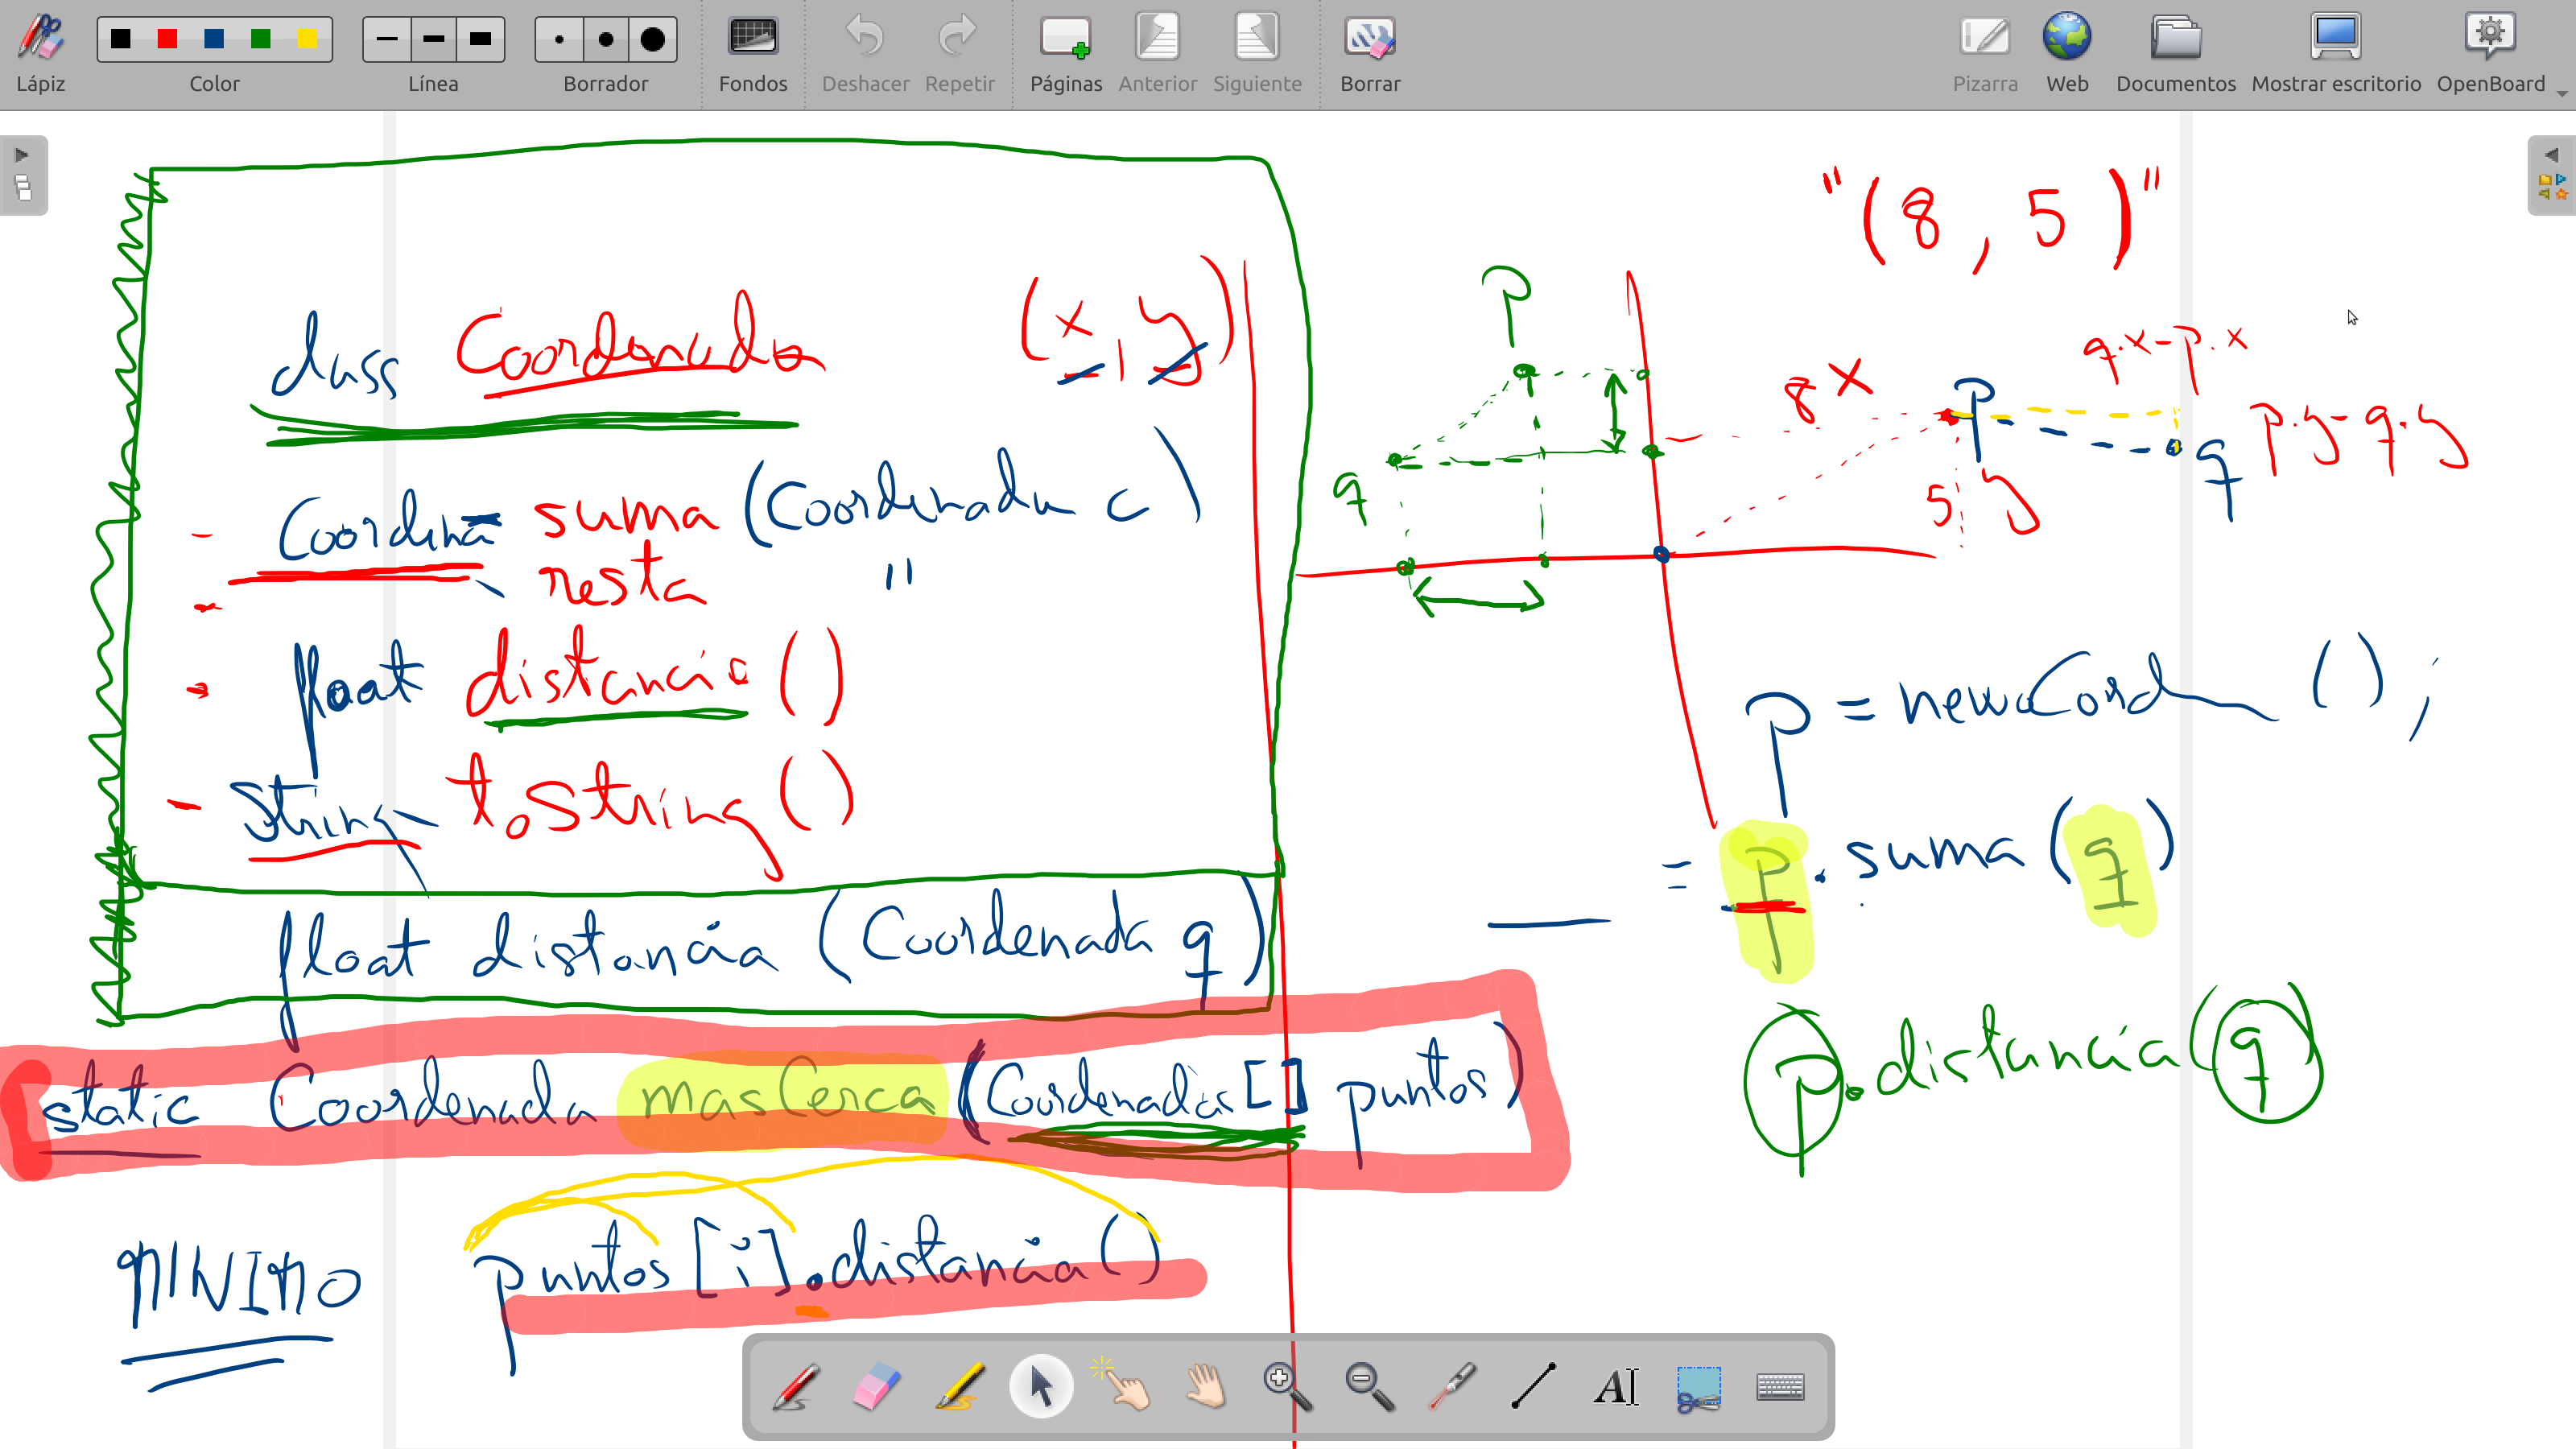 Lápiz Color Línea Borrador Fondos Deshacer Repetir Páginas Anterior Siguiente Borrar Pizarra Web Documentos Mostrar escritorio OpenBoard
"(8, 5)"
class Coordenada (x, y)
Coordena suma (Coordenada c)
resta "
float distancia ()
String toString ()
float distancia (Coordenada q)
static Coordenada masCerca (Coordenadas [] puntos)
MINIMO puntos [i].distancia ()
p
q
8 x
5 y
p
q
q.x-p.x
p.y-q.y
= p. suma (q)
p.distancia (q)
AI